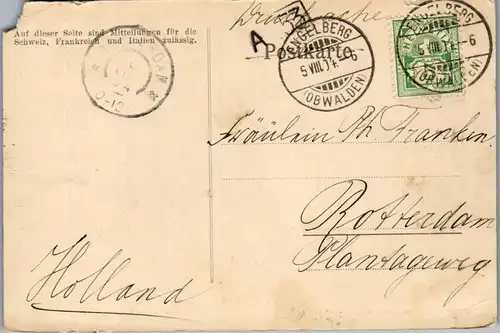 Auf dieser Seite sind Mitteilungen für die
Schweiz, Frankreich und Italien zulässig.
Drucksachen
A
Postkarte
ENGELBERG
5.VIII.04. 6
(OBWALDEN)
ENGELBERG
5.VIII.04. 6
(OBWALDEN)
9-12
Fräulein Ph. Franken.
Rotterdam
Plantageweg
Holland